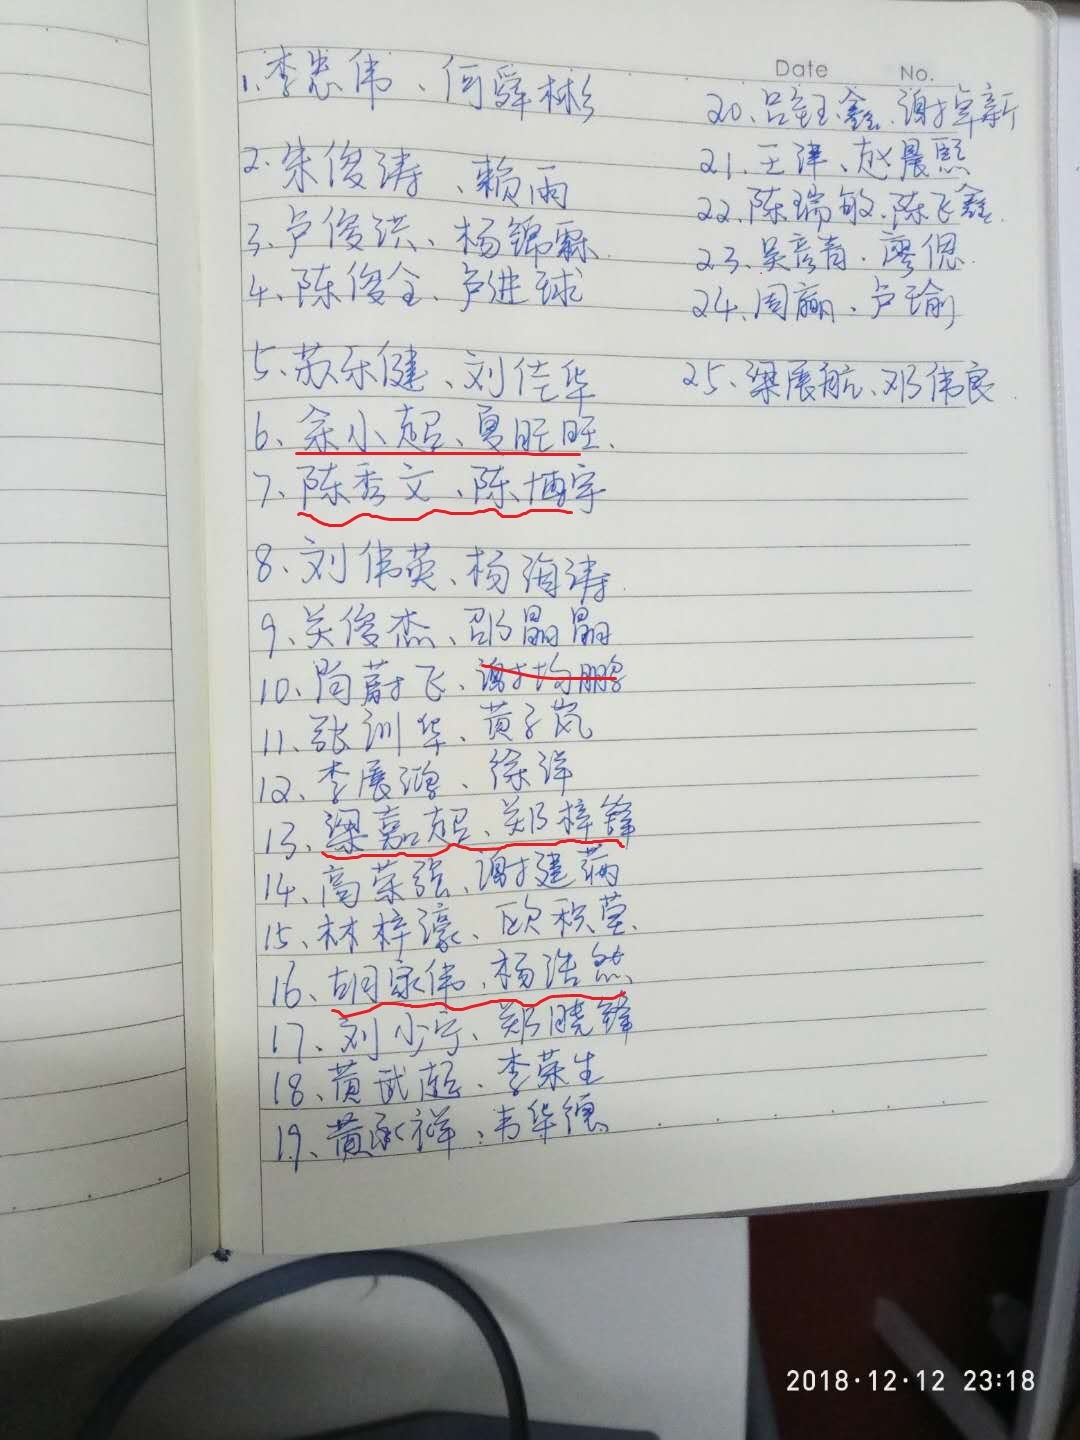 Date No.
1、李忠伟、何舜彬
2、朱俊涛、赖雨
3、卢俊洪、杨锦霖
4、陈俊全、卢进球
5、苏乐健、刘佳华
6、余小超、夏旺旺、
7、陈秀文、陈博宇
8、刘伟英、杨海涛
9、关俊杰、邵晶晶
10、陶蔚飞、谢均鹏
11、张训华、黄子岚
12、李展鸿、徐洋
13、梁嘉超、郑梓锋
14、高荣强、谢建
15、林梓濠、欧积莹
16、胡家伟、杨浩然
17、刘少宁、郑晓锋
18、黄武超、李荣生
19、黄承祥、韦华德
20、吕钰鑫、谢卓新
21、王津、赵晨熙
22、陈瑞敏、陈飞鑫
23、吴彦青、廖偲
24、周赢、卢瑜
25、梁展航、邓伟良
2018·12·12 23:18